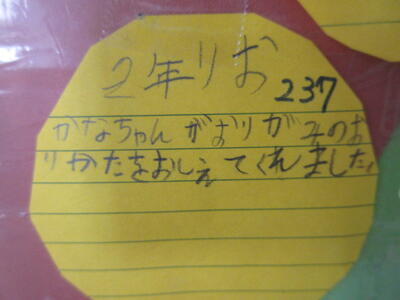 2年りお
237
かなちゃんがおりがみのお
りかたをおしえてくれました。